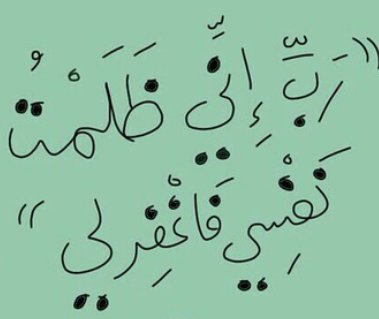 "رَبِّ إِنِّي ظَلَمْتُ
نَفْسِي فَاغْفِرْ لِي"